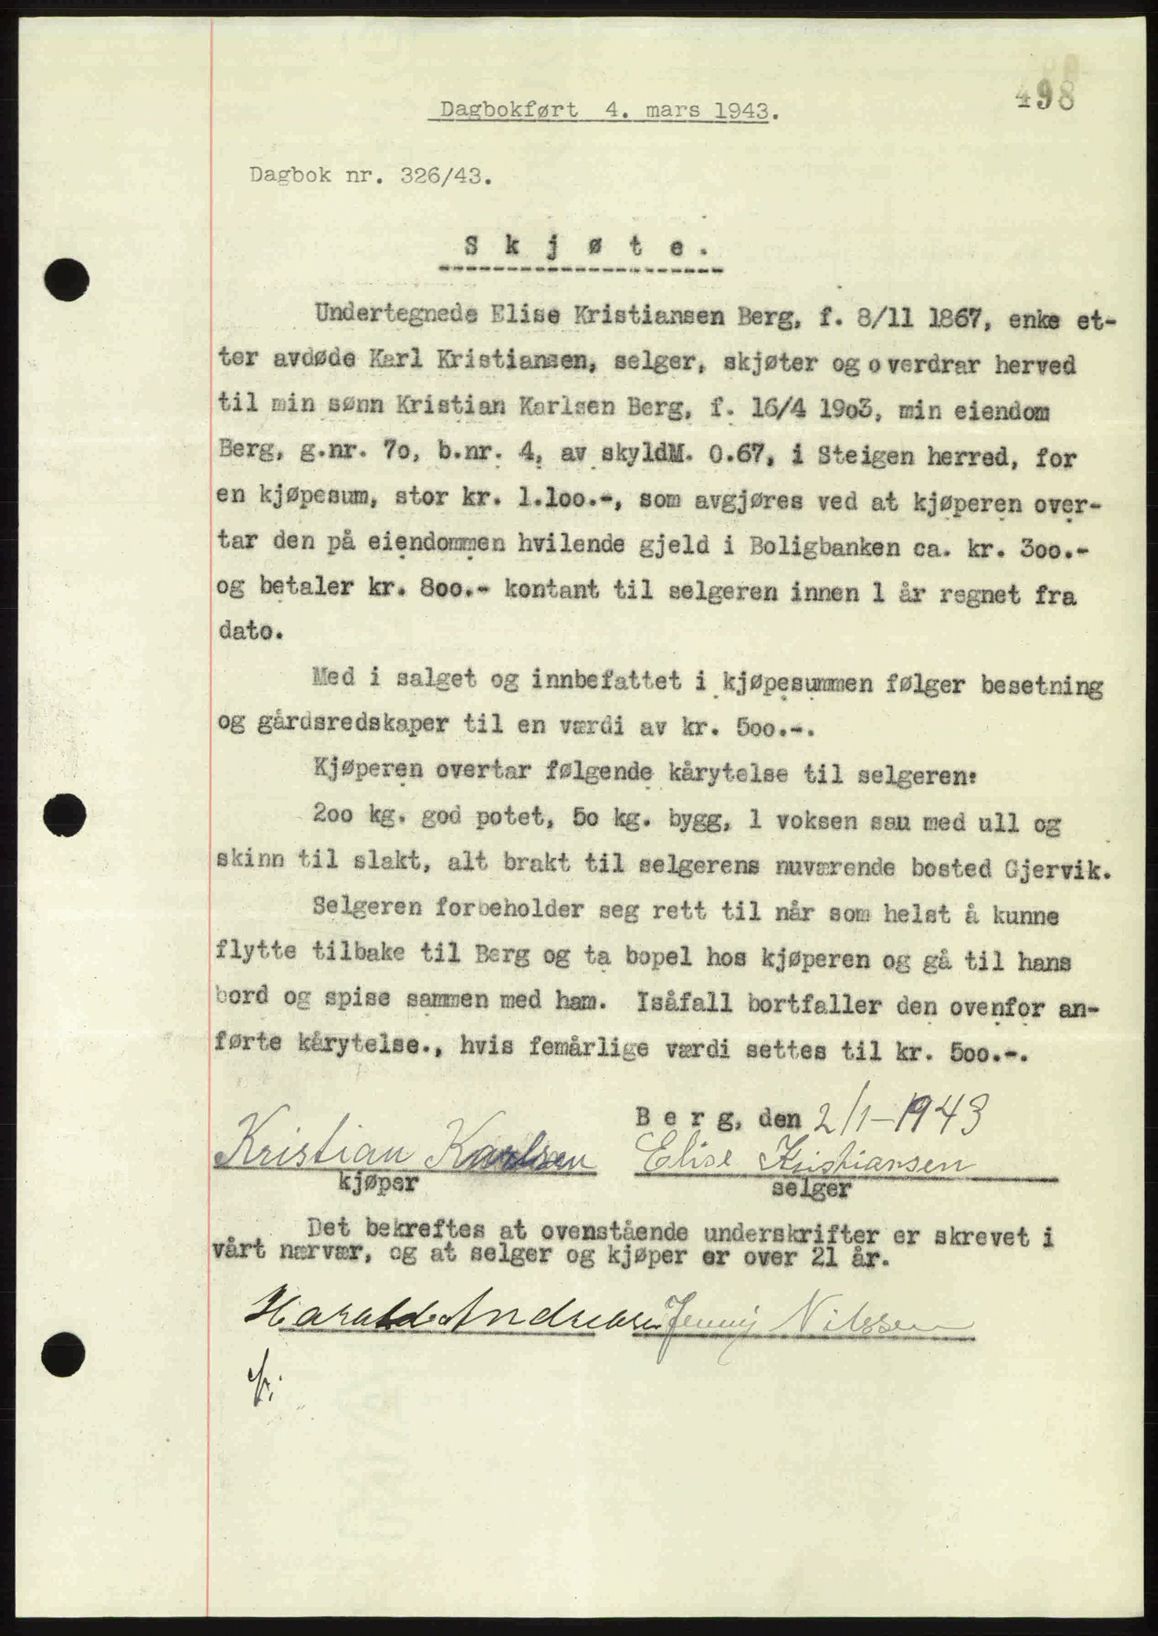 498
Dagbokført 4. mars 1943.
Dagbok nr. 326/43.
S k j ø t e .
Undertegnede Elise Kristiansen Berg, f. 8/11 1867, enke et-
ter avdøde Karl Kristiansen, selger, skjøter og overdrar herved
til min sønn Kristian Karlsen Berg, f. 16/4 19o3, min eiendom
Berg, g.nr. 7o, b.nr. 4, av skyldM. 0.67, i Steigen herred, for
en kjøpesum, stor kr. 1.1oo.-, som avgjøres ved at kjøperen over-
tar den på eiendommen hvilende gjeld i Boligbanken ca. kr. 3oo.-
og betaler kr. 8oo.- kontant til selgeren innen 1 år regnet fra
dato.
Med i salget og innbefattet i kjøpesummen følger besetning
og gårdsredskaper til en værdi av kr. 5oo.-.
Kjøperen overtar følgende kårytelse til selgeren:
2oo kg. god potet, 5o kg. bygg, 1 voksen sau med ull og
skinn til slakt, alt brakt til selgerens nuværende bosted Gjervik.
Selgeren forbeholder seg rett til når som helst å kunne
flytte tilbake til Berg og ta bopel hos kjøperen og gå til hans
bord og spise sammen med ham. Isåfall bortfaller den ovenfor an-
førte kårytelse., hvis femårlige værdi settes til kr. 5oo.-.
B e r g, den 2/1-1943
Kristian Karlsen Elise Kristiansen
kjøper selger
Det bekreftes at ovenstående underskrifter er skrevet i
vårt nærvær, og at selger og kjøper er over 21 år.
Harald Andreasen Jenny Nilssen